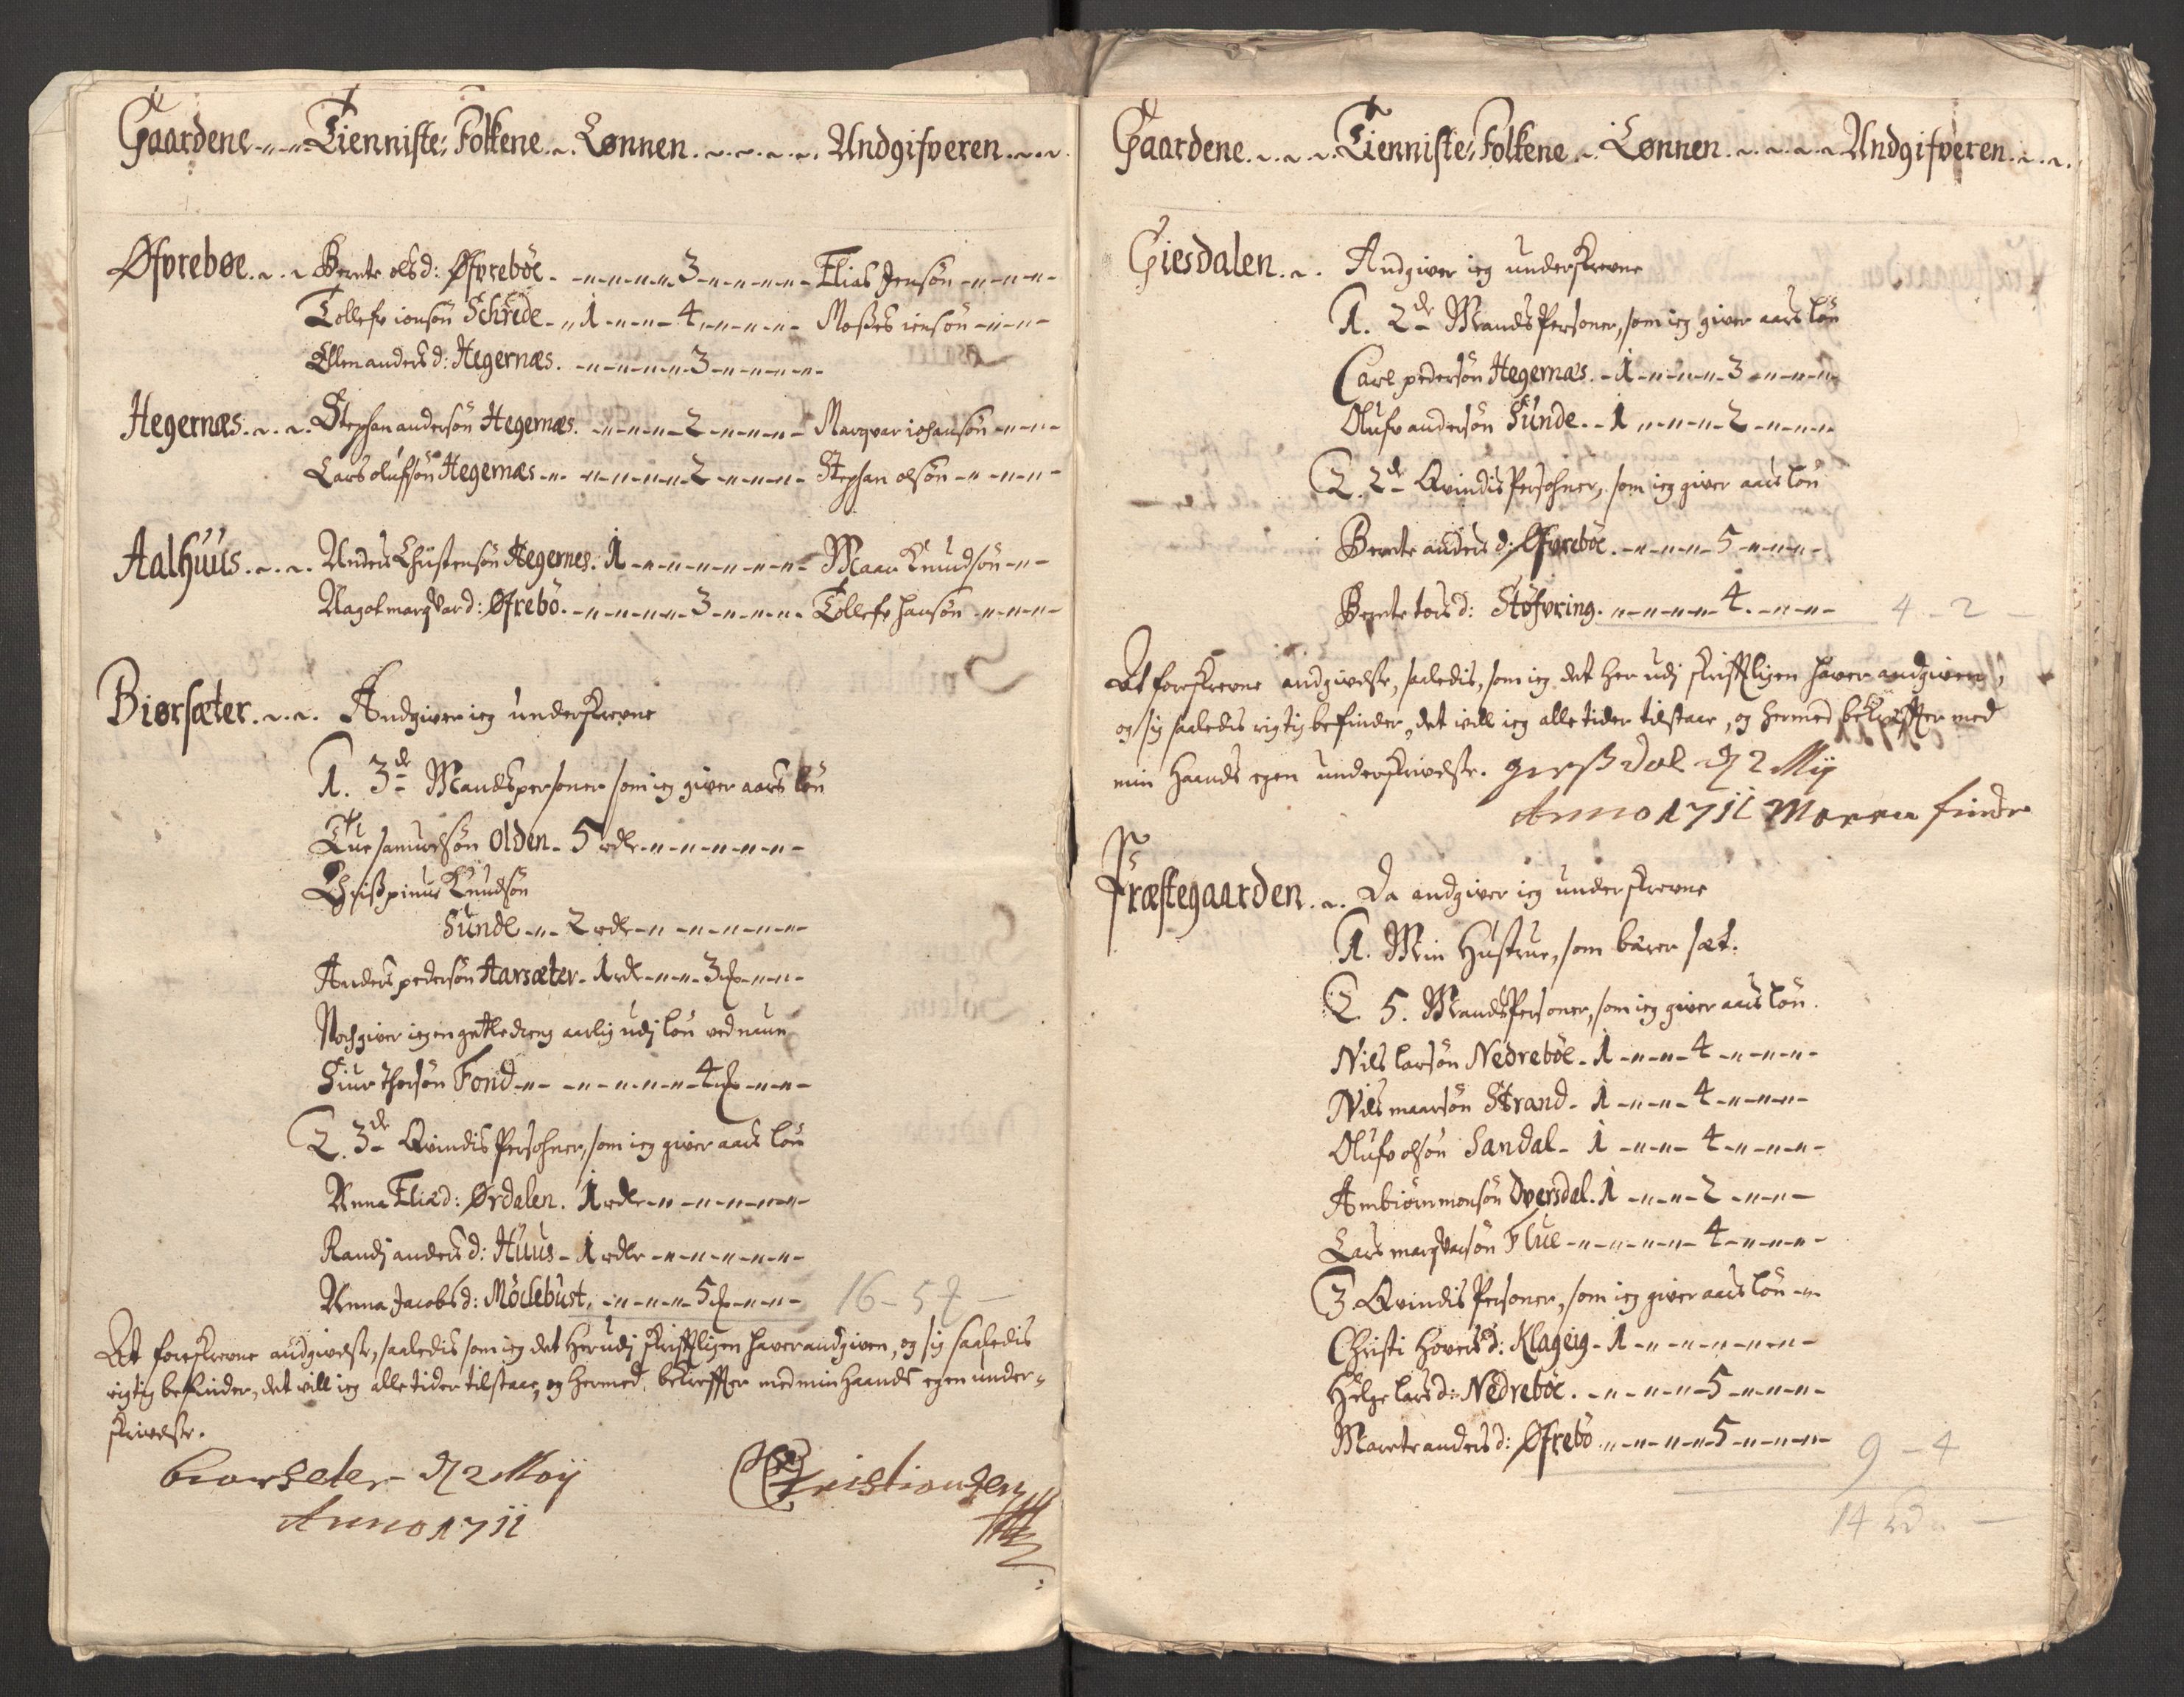 Gaardene Tienniste Folkene Lønnen Undgifveren
Øfvrebøe Berete olsd: Øfvrebøe 3 Elias Jensøn
Tollefv ionsøn Schrede 1 4 Moses iensøn
Ellen andersd: Hegernæs 3
Hegernæs Stephan andersøn Hegernæs 2 Marqvar iohansøn
Lars olufsøn Hegernæs 2 Stephan olsøn
Aalhuus Anders Christensøn Hegernes 1 Maar Knudsøn
Magot marqvard: Øfrebø 3 Tollefv hansøn
Biørsæter Andgiver ieg underskrevne
1. 3de Mandspersoner som ieg giver aars løn
Tue samuelsøn Olden 5 rdlr
Chrispinus Knudsøn
Sunde 2 rdlr
Anders pedersøn Aarsæter 1 rdr 3
Noch giver ieg en gætledreng aarlig udj løn ved naun
Siur Thorsøn Fond 4
2. 3de Qvindis Persohner, som ieg giver aars løn
Anna Eliæd: Ørdalen. 1 rdlr
Randj andersd: Huus 1 rdlr
Anna Jacobsd: Möclebust 5
16 - 5
At foreskrevne andgivelse, saaledis som ieg det herudj skrifftligen haver andgiven, og sig saaledis
rigtig befinder, det vill ieg alle tider tilstaae, og hermed bekreffter med min haands egen under-
skrivelse.
biorseter d 2 Maij Christian
Anno 1711
Gaardene Tienniste Folkene Lønnen Undgifveren
Giesdalen Andgiver ieg underskrevne
1. 2de Mands Personer, som ieg giver aars løn
Carl pedersøn Hegernæs 1 3
Olufv andersøn Sunde 1 2
2. 2de Qvindis Persohner, som ieg giver aars løn
Berete anders d: Øfvrebøe 5
Berete tors d: Støfvring 4
4 - 2
At foreskrevne andgivelse, saaledis, som ieg det her udj skrifftligen haver andgiven,
og sig saaledis rigtig befinder, det vill ieg alle tider tilstaae, og hermed bekreffter med
min haands egen underskrivelse. d 2 Mij
Anno 1711 Maren finde
Præstegaarden Da andgiver ieg underskrevne
1. Min Hustrue, som bærer sæt.
2. 5. Mands Personer, som ieg giver aars løn
Nils larsøn Nedrebøe 1 4
Nils maarsøn Strand 1 4
Olufv olsøn Sandal 1 4
Ambiørn monsøn Dversdal 1 2
Lars marqvarsøn Flue 4
3 Qvindis Personer, som ieg giver aars løn
Christi hoversd: Klageig 1
Helge larsd: Nedrebøe 5
Marete andersd: Øfrebø 5
9 - 4
14